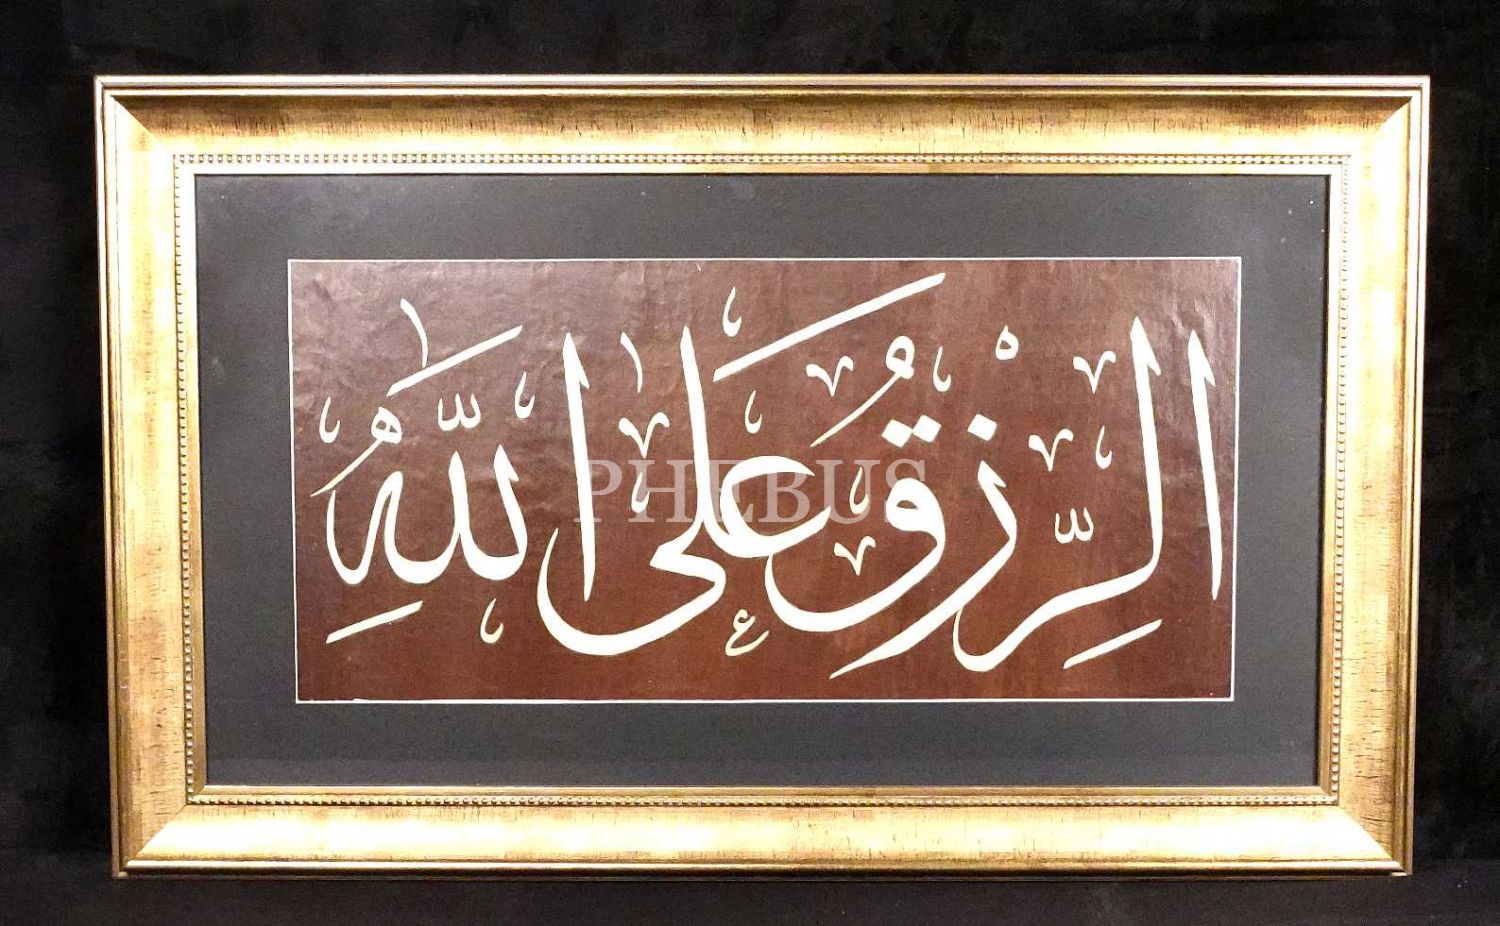 الرِّزْقُ عَلَى اللهِ
PHEBUS